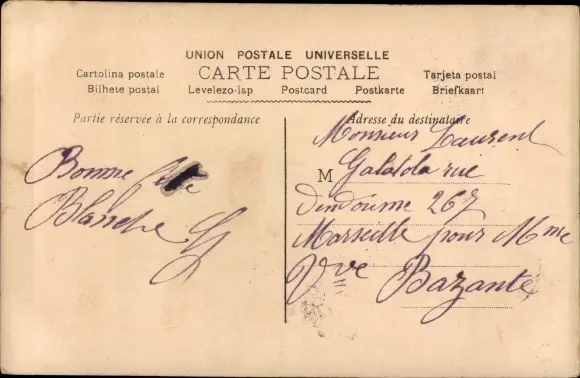 UNION POSTALE UNIVERSELLE
CARTE POSTALE
Cartolina postale
Tarjeta postal
Bilhete postal
Levelezo-lap
Postcard
Postkarte
Briefkaart
Partie réservée à la correspondance
Adresse du destinataire
Bonne fête
Blanche
Monsieur Laurent
M
rue
267
Marseille pour Mme
Vve Bazante